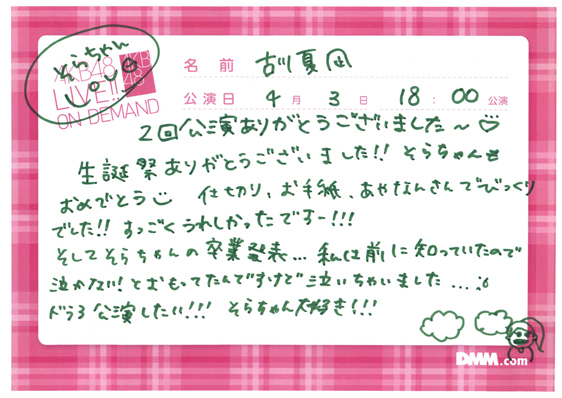 そらちゃん
AKB48
LIVE!!
ON DEMAND
AKB
48
名前 古川夏凪
公演日 4月3日 18:00公演
2回公演ありがとうございました〜♡
生誕祭ありがとうございました!! そらちゃんも
おめでとう 仕切り、お手紙、あやなんさんでびっくり
でした!! すっごくうれしかったですー!!!
そしてそらちゃんの卒業発表... 私は前に知っていたので
泣かない!とおもってたんですけど泣いちゃいました...
ドラ3公演したい!!! そらちゃん大好き!!!
DMM.com